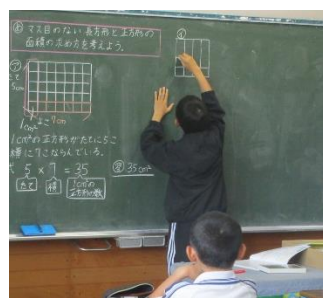 め マス目のない長方形と正方形の
面積の求め方を考えよう。
ア
たて
5cm
1cm² よこ7cm
1cm²の正方形がたてに5こ
横に7こならんでいる。
式 5 × 7 = 35
たて 横 1cm²の
正方形の数
答 35cm²
イ